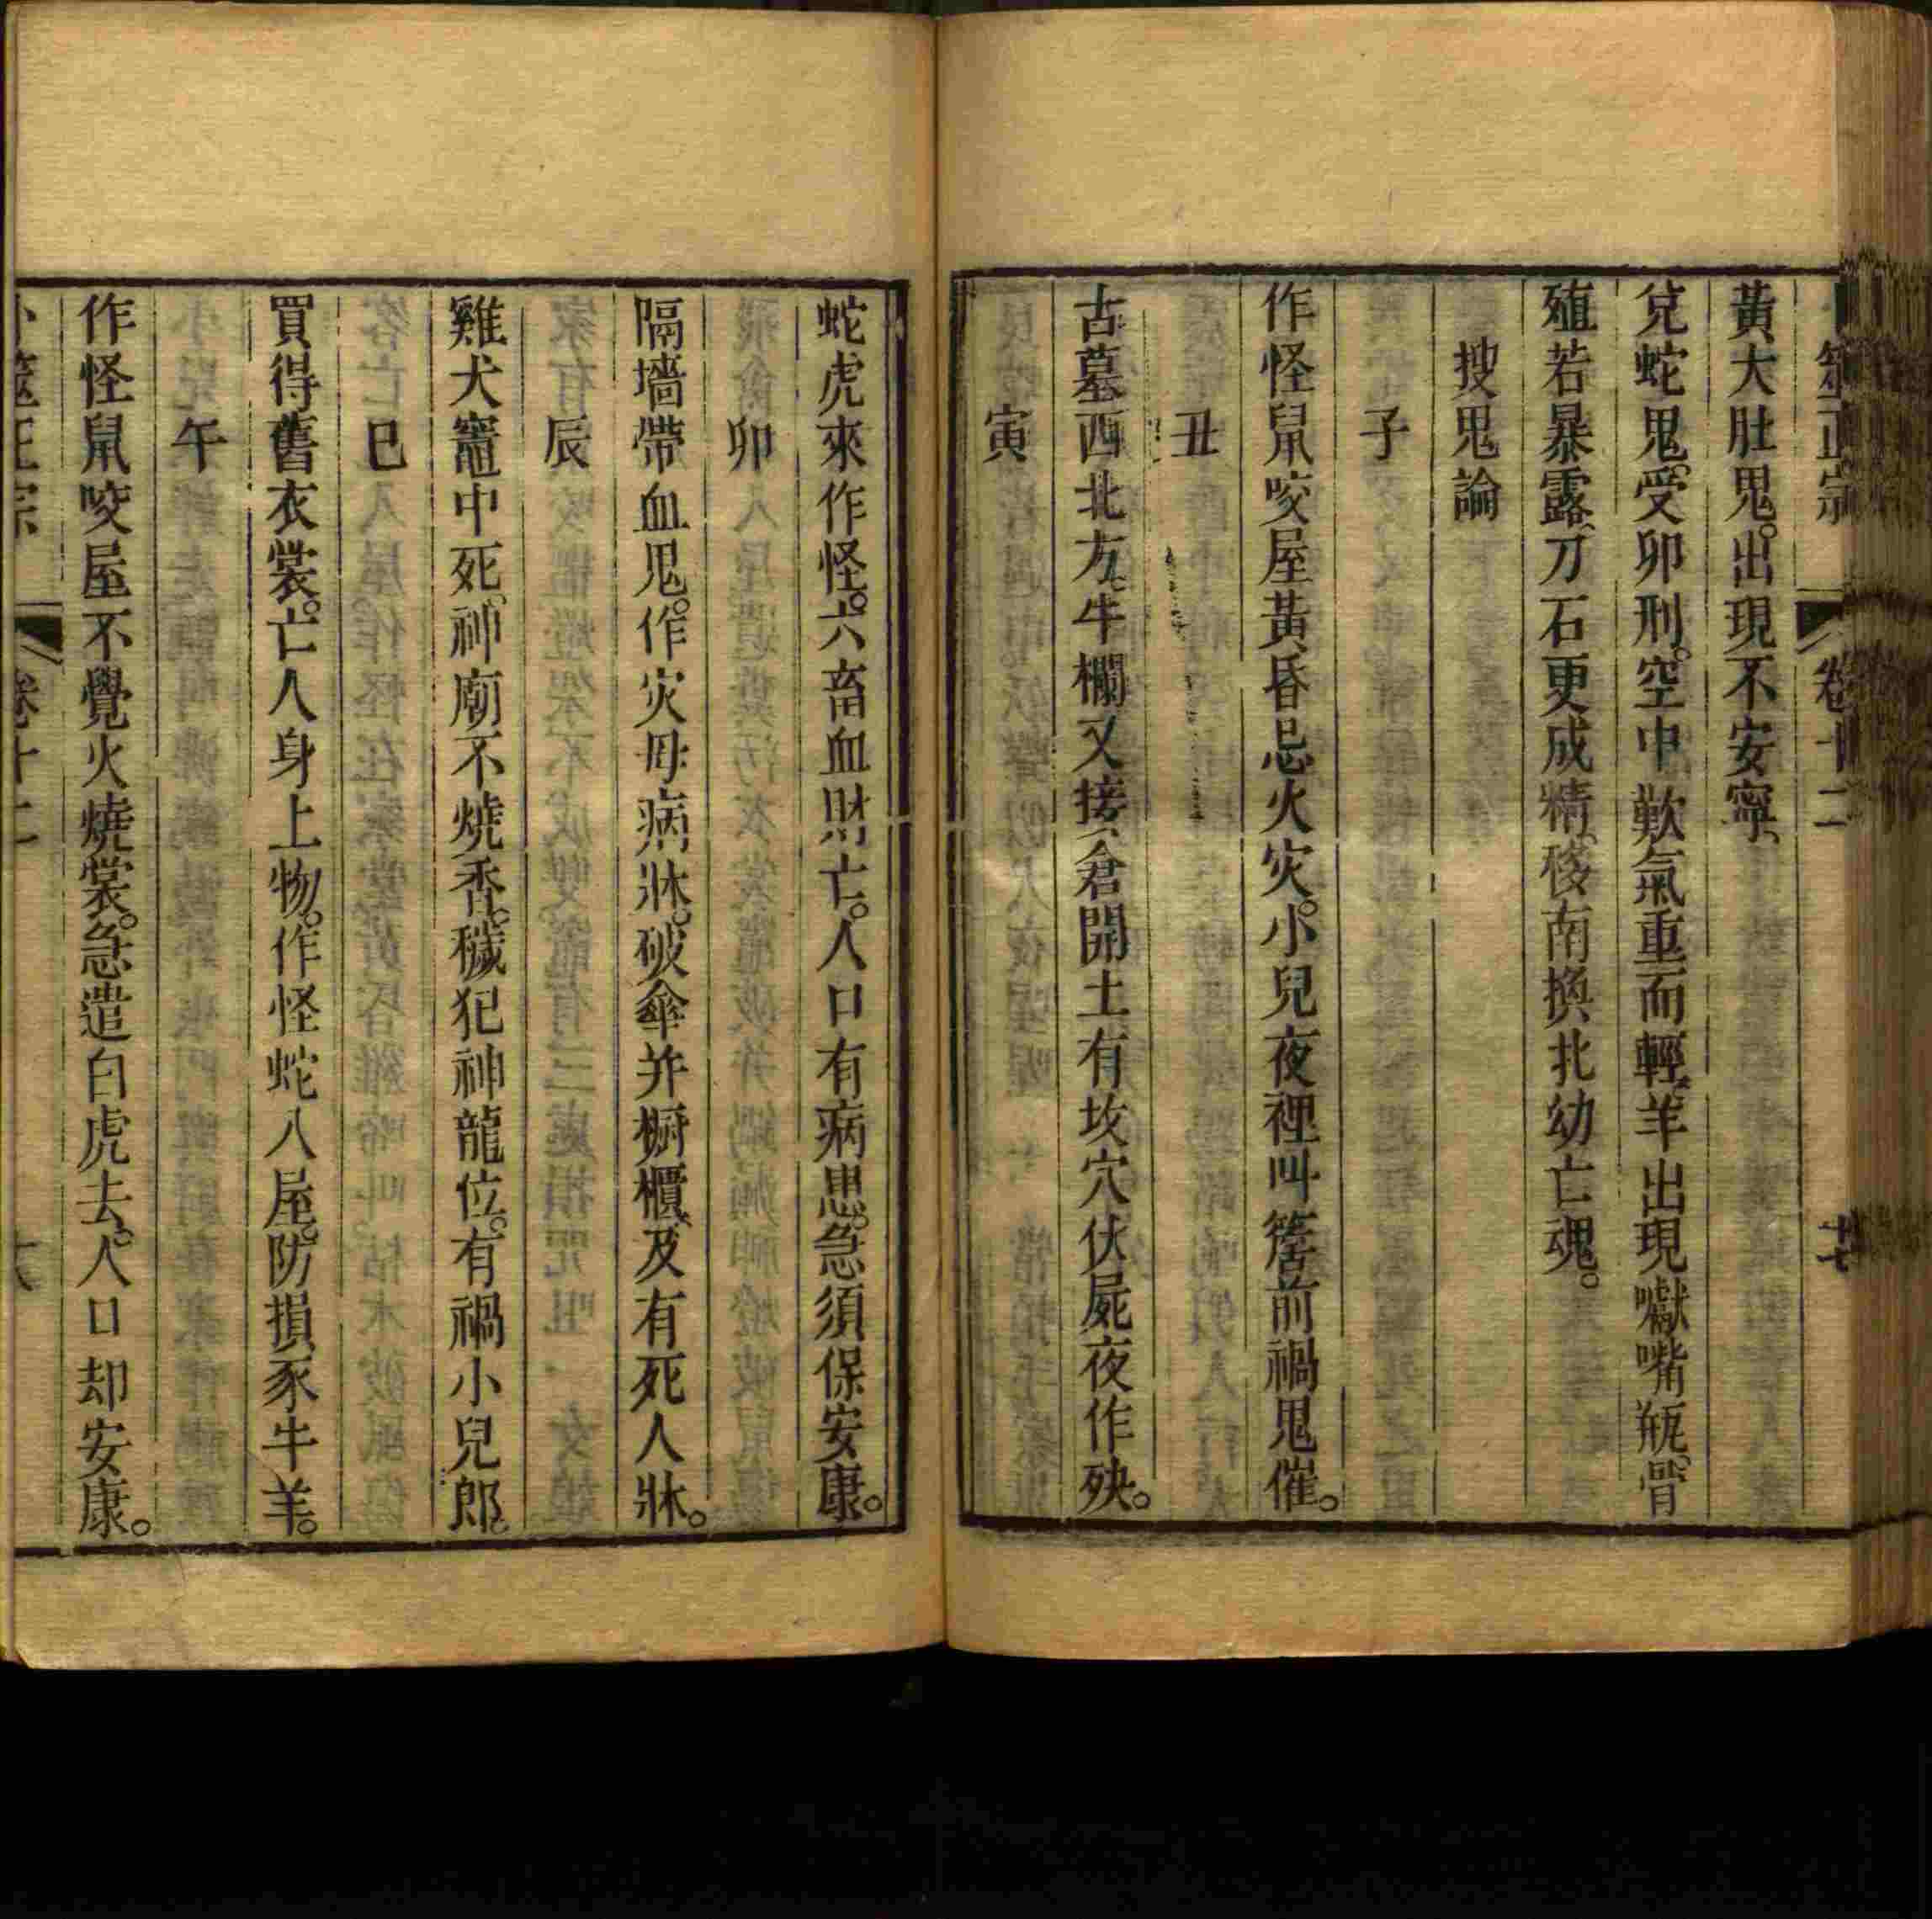 筮正宗 卷十二 十七
黃大肚鬼。出現不安寧、
兌蛇鬼。受卯刑。空中歎氣重而輕。羊出現嚱嘴瓶。骨
殖若暴露、刀石更成精。移南換北幼亡魂。
搜鬼論
子
作怪鼠咬屋黃昏忌火灾。小兒夜裡叫簷前禍鬼催。
丑
古墓西北方。牛欄又接倉開土有坟穴伏屍夜作殃。
寅
蛇虎來作怪。六畜血財亡。人口有病患。急須保安康。
卯
隔墻帶血鬼。作灾母病牀。破傘并櫥櫃。及有死人牀。
辰
雞犬竈中死。神廟不燒香。穢犯神龍位。有禍小兒郎。
巳
買得舊衣裳。亡人身上物。作怪蛇入屋。防損豕牛羊。
午
作怪鼠咬屋不覺火燒裳。急遣白虎去。人口却安康。
卜筮正宗 卷十二 十八